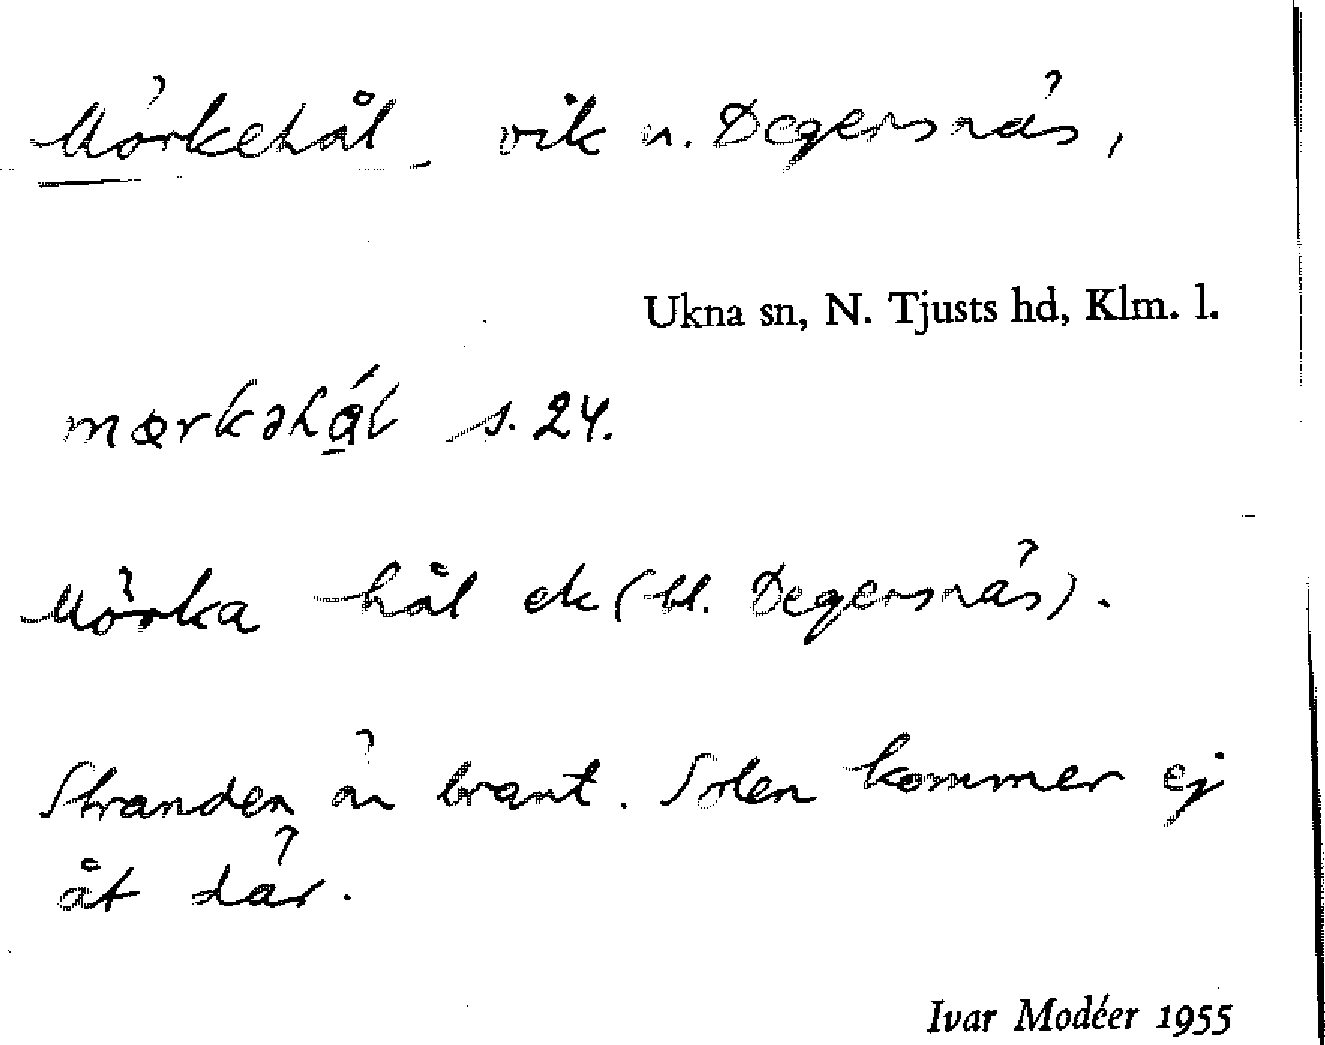 Mörkehål, vik u. Degersnäs,
Ukna sn, N. Tjusts hd, Klm. l.
mœrkəhål s. 24.
Mörka hål ek (bl. Degersnäs).
Stranden är brant. Solen kommer ej
åt där.
Ivar Modéer 1955